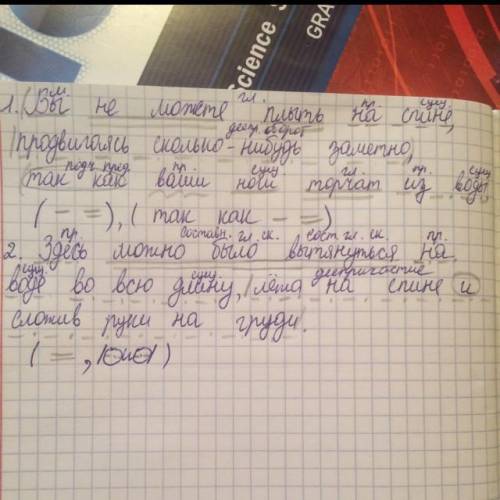 Science S
GRA
м. гл. пр. сущ
1. (Вы не можете плыть на спине,
дееприч. оборот
продвигаясь сколько-нибудь заметно,
подч. пр. сущ гл. пр.
(так как ваши ноги торчат из воды
( - = ), ( так как - = )
пр. составн. гл. ск. сост. гл. ск. пр.
2. Здесь можно было вытянуться на
сущ сущ деепричастие
воде во всю длину, лёжа на спине и
сложив руки на груди.
( = , |ОиО| )